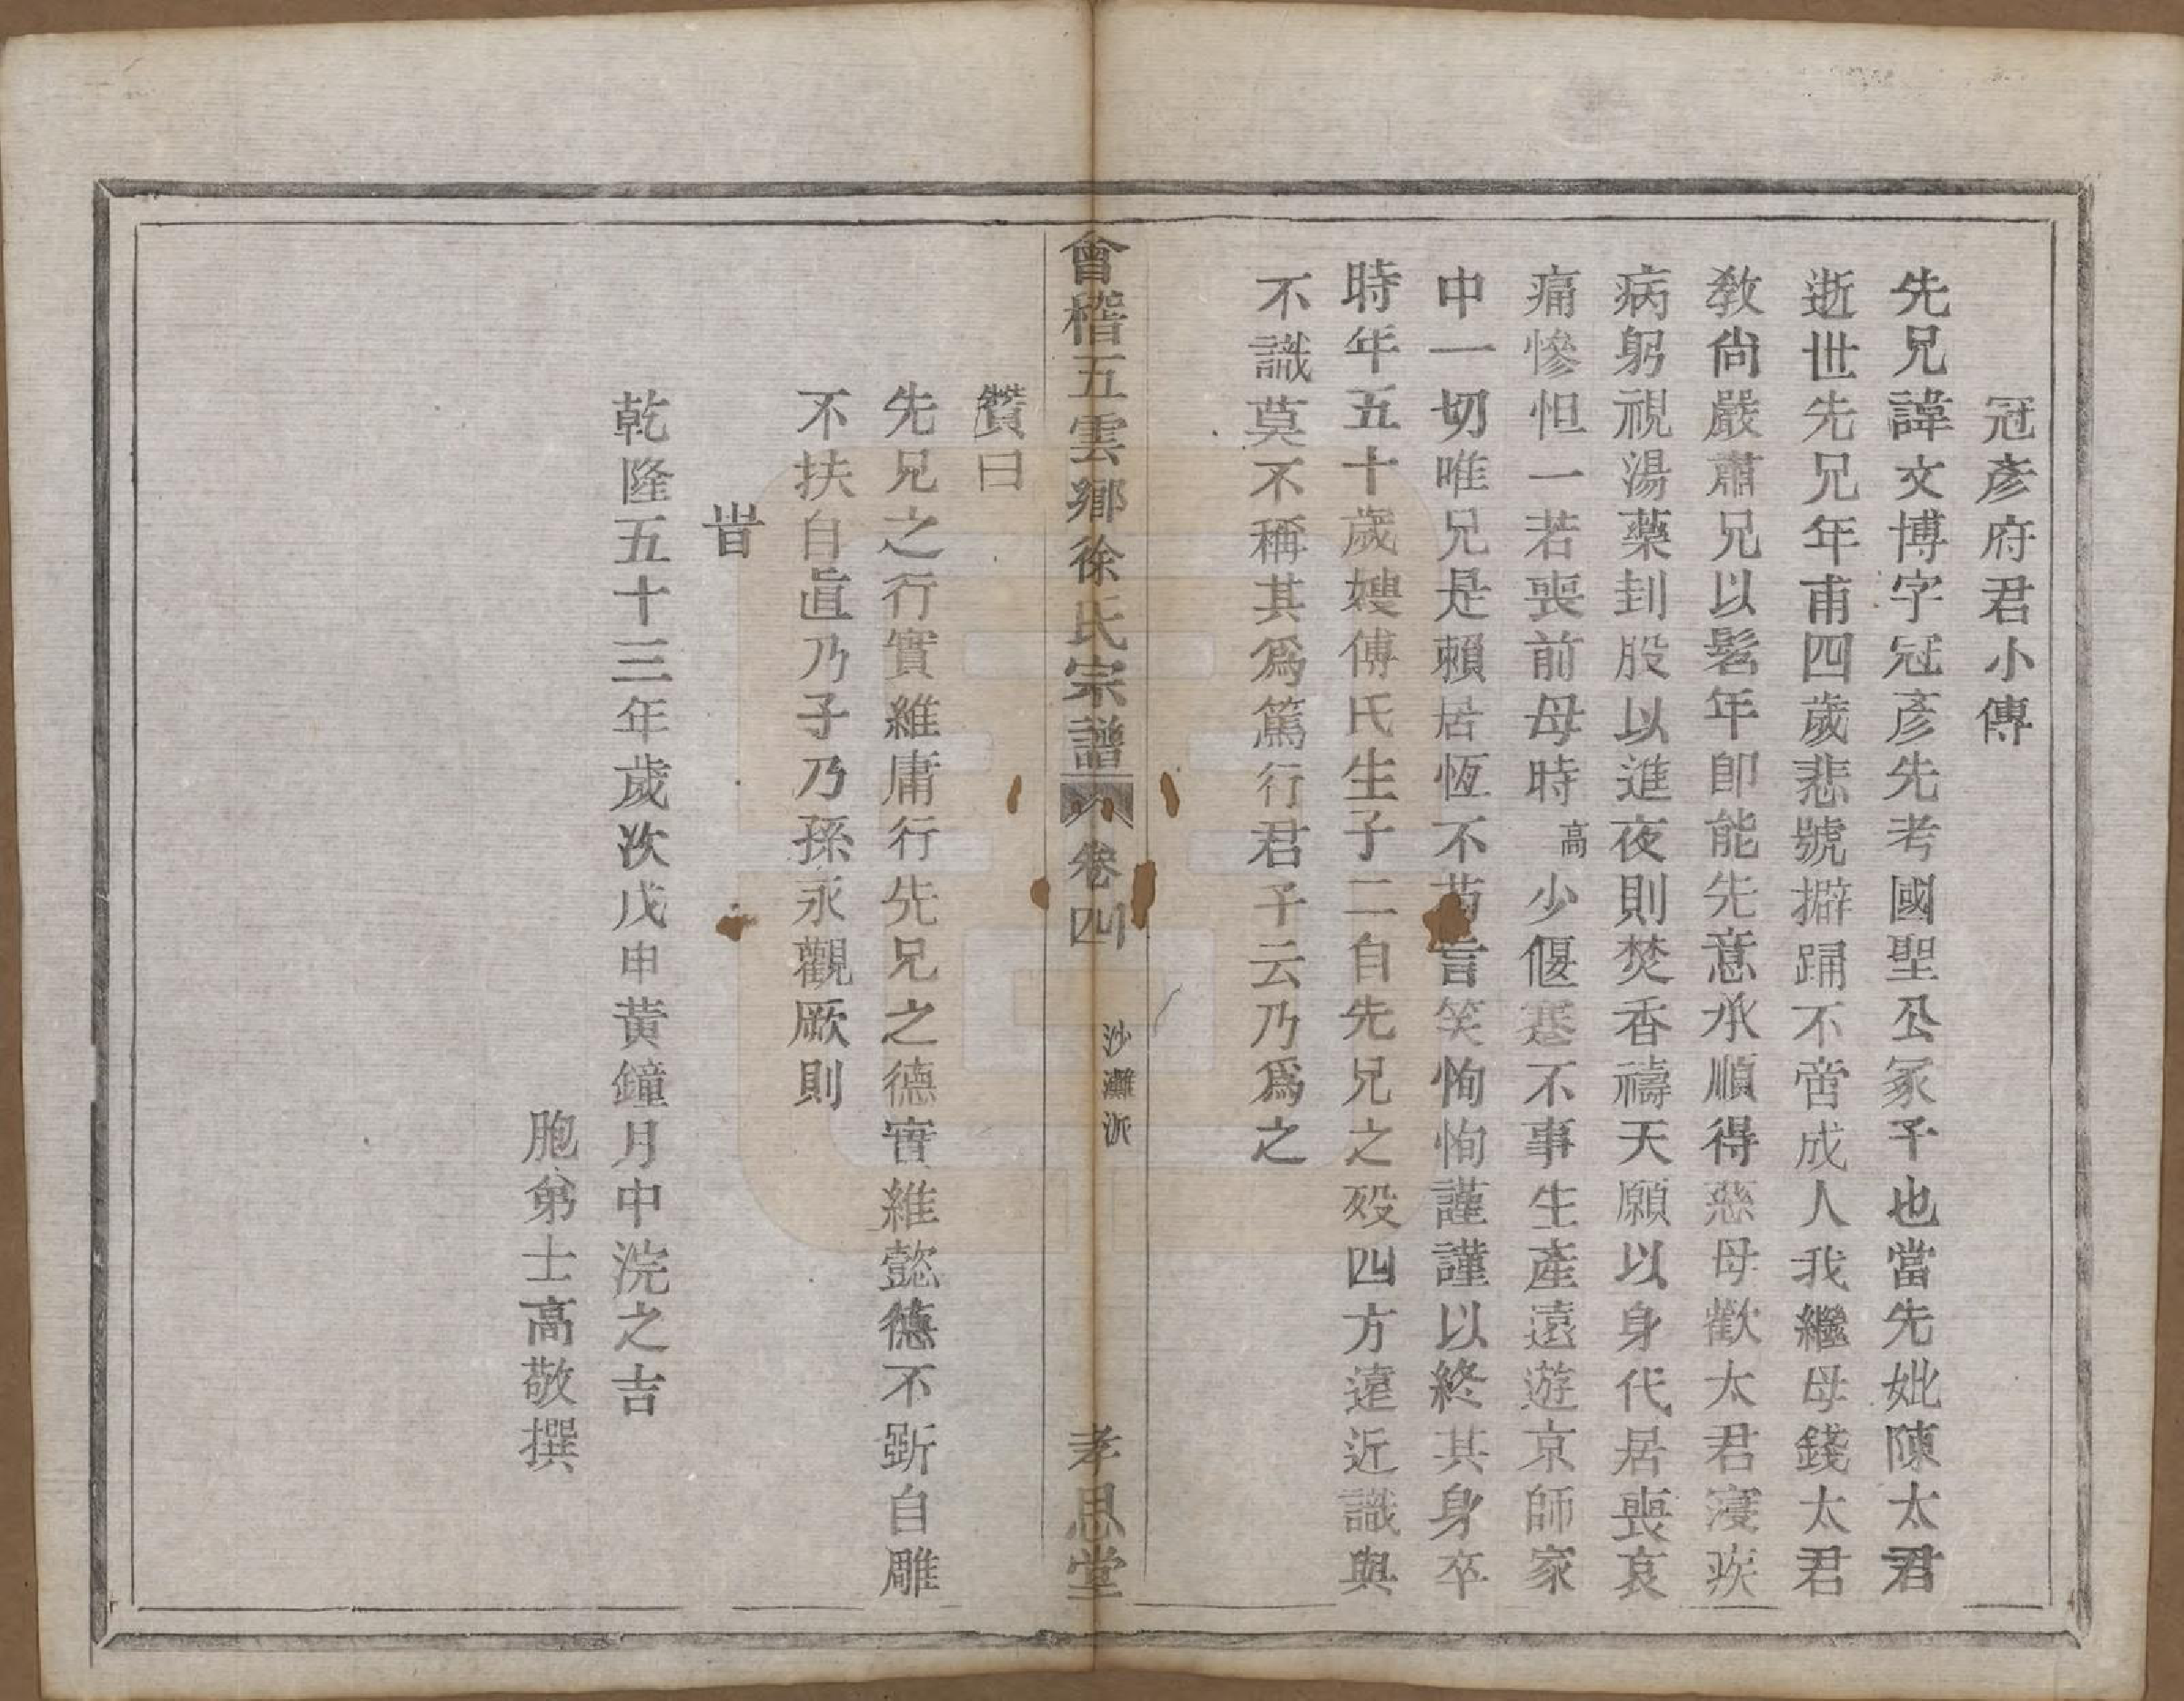 冠彥府君小傳
先兄諱文博字冠彥先考國聖公冢子也當先妣陳太君
逝世先兄年甫四歲悲號擗踊不啻成人我繼母錢太君
敎尙嚴肅兄以髫年卽能先意承順得慈母歡太君寖疾
病躬視湯藥刲股以進夜則焚香禱天願以身代居喪哀
痛慘怛一若喪前母時高少偃蹇不事生產遠遊京師家
中一切唯兄是賴居恆不苟言笑恂恂謹謹以終其身卒
時年五十歲嫂傅氏生子二自先兄之殁四方遠近識與
不識莫不稱其爲篤行君子云乃爲之
會稽五雲鄉徐氏宗譜 卷四 沙灘派 孝思堂
贊曰
先兄之行實維庸行先兄之德實維懿德不斲自雕
不扶自直乃子乃孫永觀厥則
旹
乾隆五十三年歲次戊申黄鐘月中浣之吉
胞弟士高敬撰